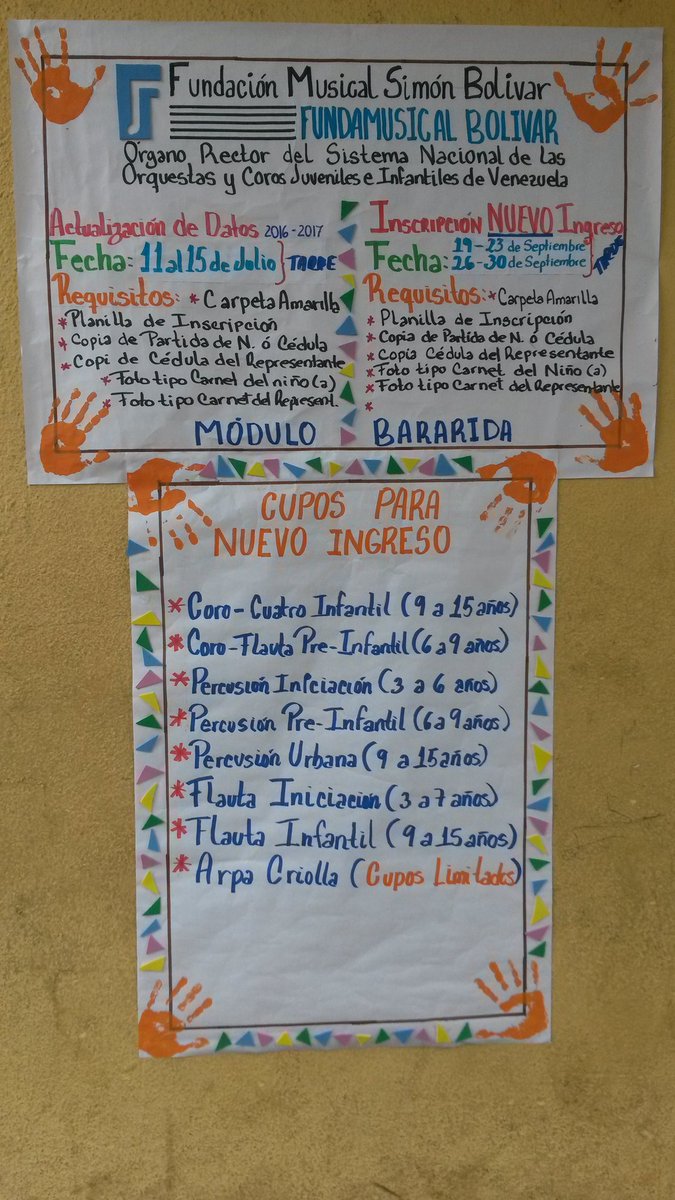 Fundación Musical Simón Bolivar
FUNDAMUSICAL BOLIVAR
Órgano Rector del Sistema Nacional de las
Orquestas y Coros Juveniles e Infantiles de Venezuela
Actualización de Datos 2016-2017
Fecha: 11 al 15 de Julio } TARDE
Requisitos: * Carpeta Amarilla
* Planilla de Inscripción
* Copia de Partida de N. ó Cédula
* Copi de Cédula del Representante
* Foto tipo Carnet del niño(a)
* Foto tipo Carnet del Represent.
Inscripción NUEVO Ingreso
Fecha: 19-23 de Septiembre
26-30 de Septiembre } TARDE
Requisitos: * Carpeta Amarilla
* Planilla de Inscripción
* Copia de Partida de N. ó Cédula
* Copia Cédula del Representante
* Foto tipo Carnet del Niño (a)
* Foto tipo Carnet del Representante
*
MÓDULO BARARIDA
CUPOS PARA
NUEVO INGRESO
* Coro-Cuatro Infantil (9 a 15 años)
* Coro-Flauta Pre-Infantil (6 a 9 años)
* Percusión Iniciación (3 a 6 años)
* Percusión Pre-Infantil (6 a 9 años)
* Percusión Urbana (9 a 15 años)
* Flauta Iniciación (3 a 7 años)
* Flauta Infantil (9 a 15 años)
* Arpa Criolla (Cupos Limitados)